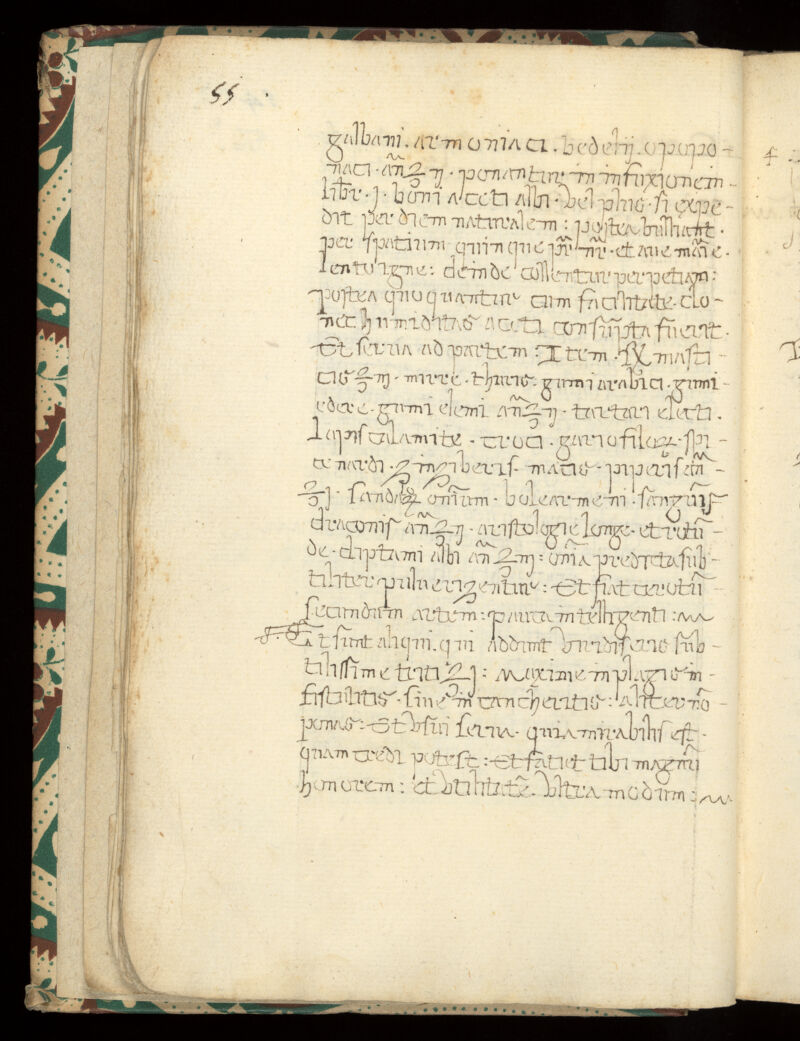 55
galbani. armoniaci. bedelij. opopo-
naci. añ ℥ ij. ponantur in infuxionem
libr. j. boni aceti albi. vel plus. si expe-
dit per diem naturalem: postea bulliant.
per spatium quinque pr̃ nr̃. et aue marie.
lento igne: deinde collentur per petiam:
postea quoquantur cum facilitate. do-
nec humiditas aceti consumpta fuerit.
Et serua ad partem: Item. ℞ masti-
cis ℥ ij. mirre. thuris. gumi arabici. gumi-
edere. gumi elemi añ ℥ ij. tartari electi.
lapis calamite. croci. gariofiloꝝ. spi-
ce nardi. zinziberis. macis. piperis añ-
℥ j. sandaꝝ omium. boli armeni. sanguis
draconis añ ℥ ij. aristologie longe. et rotũ-
de. diptami albi añ ℥ iij: omia predicta sub-
tiliter puluerizentur: Et fiat cerotũ
secundum artem: pauca intelligenti:
Et sunt aliqui. qui addunt viridis eris sub-
tilissime triti ℥ j: maxime in plagis in-
fistulitis. siue in cancheritis: aliter nõ
ponas: Et vsui serua. quia mirabilis est.
quam credi potest: Et faciet tibi magnũ
honorem: et vtilitatẽ. vltra modum: